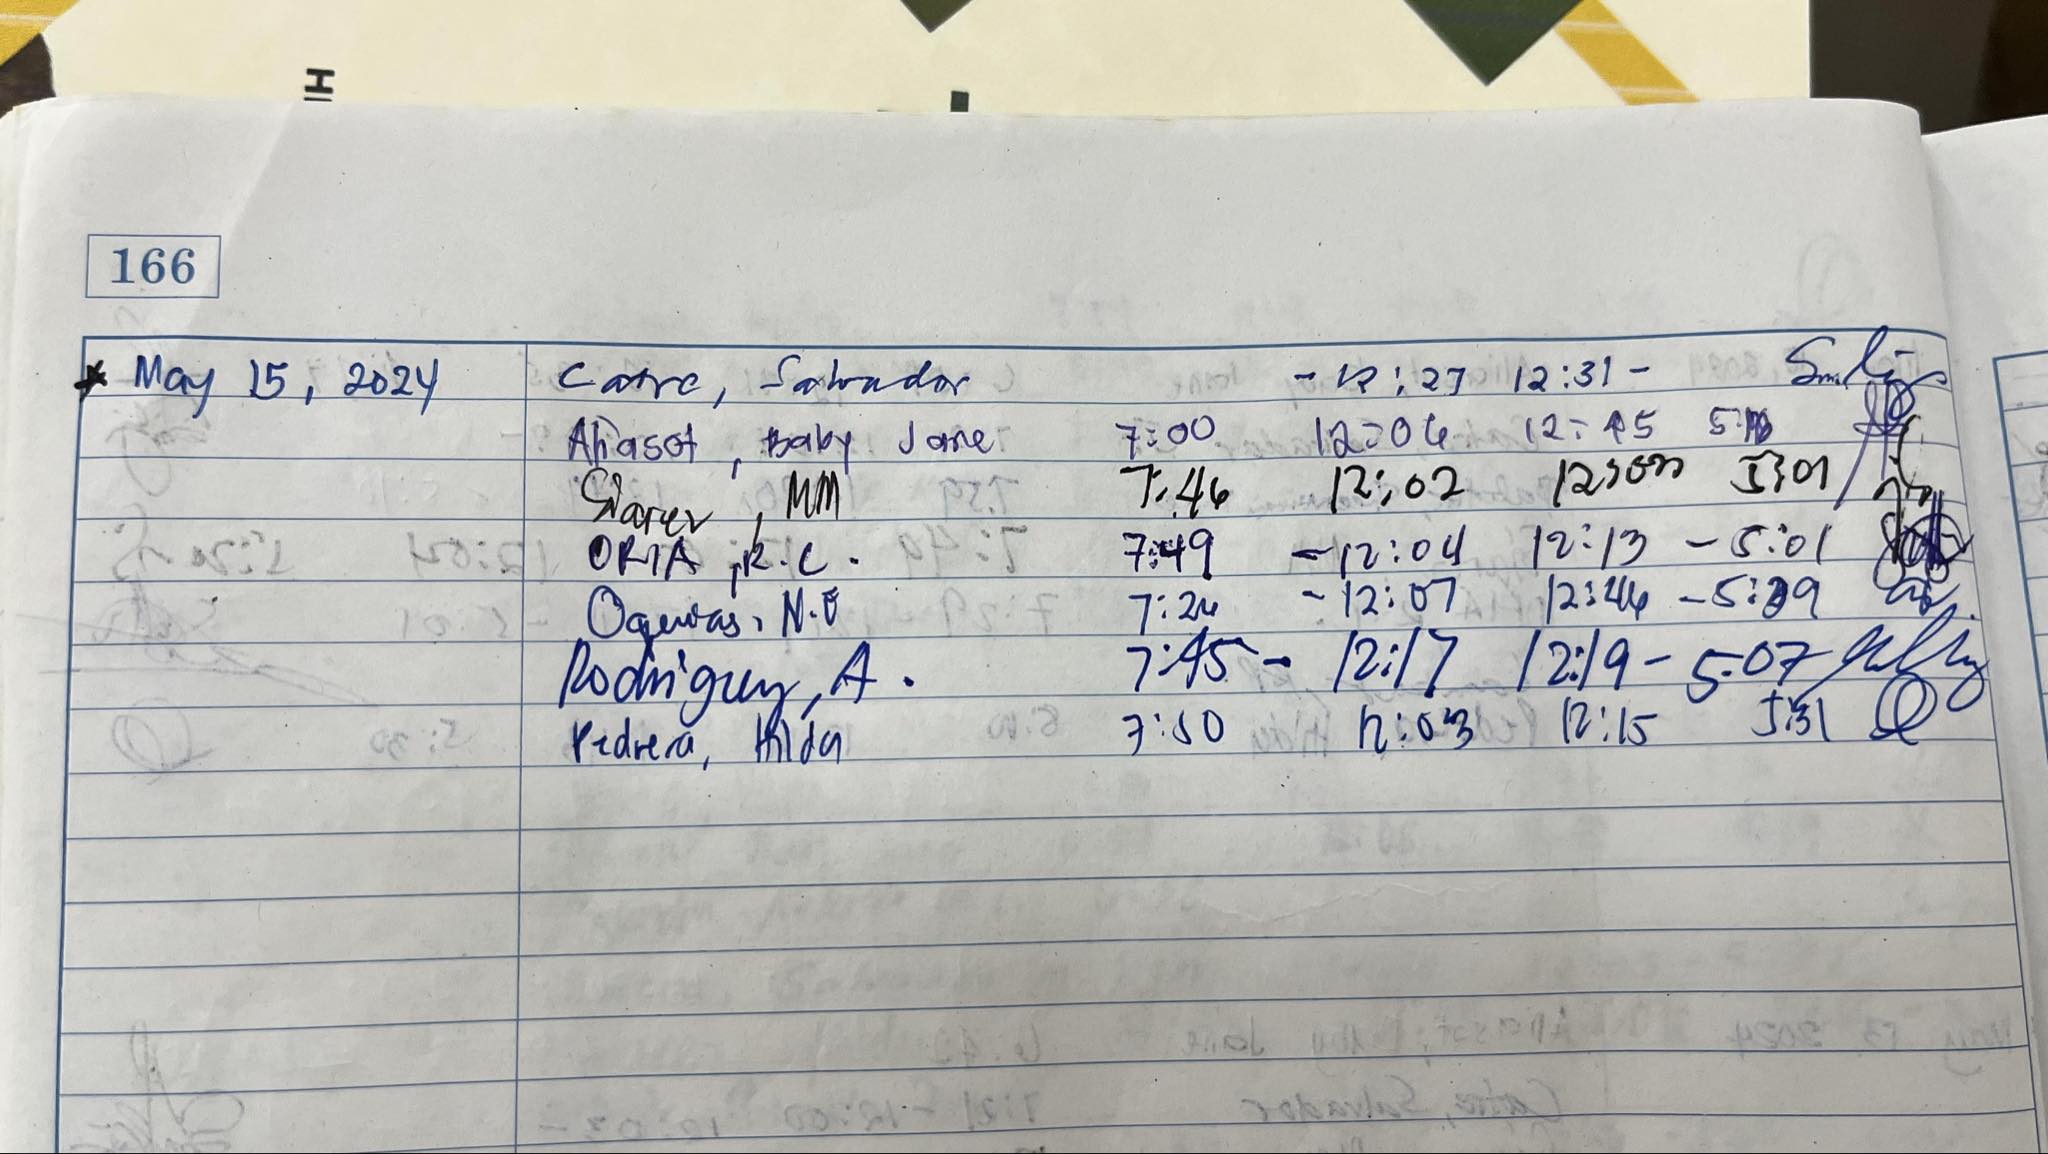 H
166
* May 15, 2024 Catre, Salvador - 12:27 12:31 -
Añasot, Baby Jane 7:00 12:06 12:45
, MM 7:46 12:02 5:01
ORIA, R.C. 7:49 - 12:04 12:13 - 5:01
N.E 7:24 - 12:07 12:46 -
Rodriguez, A. 7:45 - 12:17 12:19 - 5:07
Pedrera, Hilda 7:50 12:03 12:15 5:31